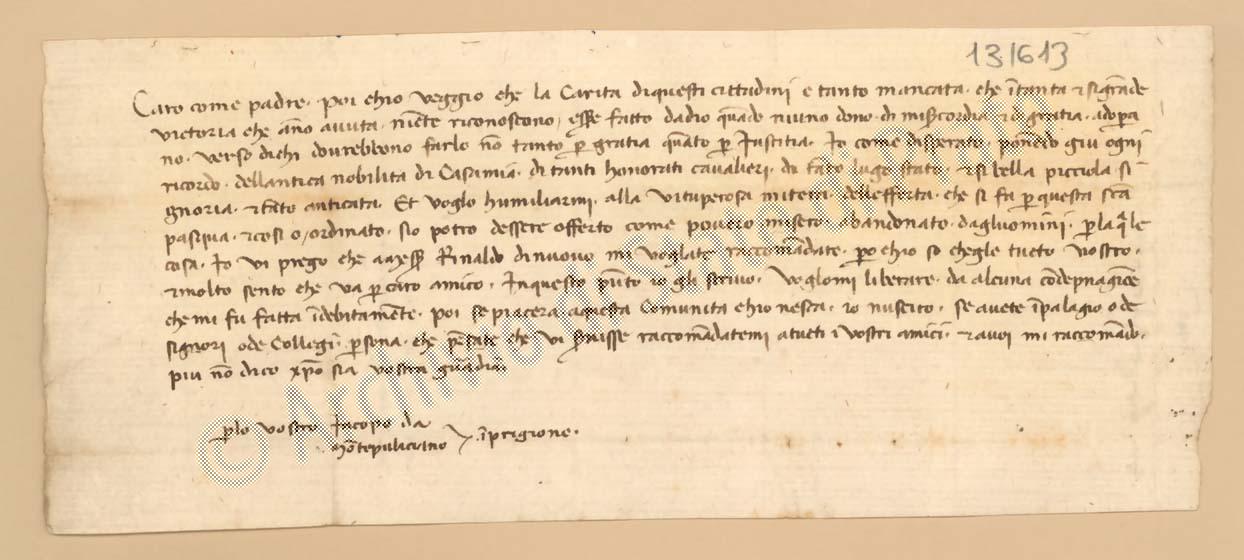 131613
Caro come padre. poi chio veggio che la Carita di questi cittadini e tanto mancata. che ītanta & sigrāde
victoria che āno avuta. niēte riconoscono, esse fatto dadio quādo niuno dono. di misīcordia & di gratia. adopa
no. verso dichi dovrebbono farlo nō tanto p gratia quāto p Iustitia. Io come disperato. ponēdo giu ogni
ricordo. dellantica nobilita di Casamia. di tanti honorati cavalieri. di tāto lūgo stato, & si bella picciola si
gnoria. & tāto anticata. Et voglo humiliarmi. alla vituperosa mitera. dellefferta. che si fa p questa scā
pasqua. & cosi o, ordinato. sio potro dessere offerto come povero misero abandonato. dagluomini. p la qle
cosa. Io vi prego che a mess Rinaldo dinuovo mi voglate raccomādare. po chio so chegle tucto vostro.
& molto sento che va p caro amico. Inquesto pūto io gli scrivo. Voglomi liberare. da alcuna cōdepnagiōe
che mi fu fatta īdebitamēte. poi se piacera aquesta Comunita chio nesca. io nusciro. Se avete īpalagio o de
signori o de Collegi. psona. che pēsate che vi svisse raccomādatemi a tucti i vostri amici. & avoi mi raccomādo.
piu nō dico xpō sia vostra guādia.
plo vostro Iacopo da
Mōtepulciano īprigione.
© Archivio di Stato di Prato